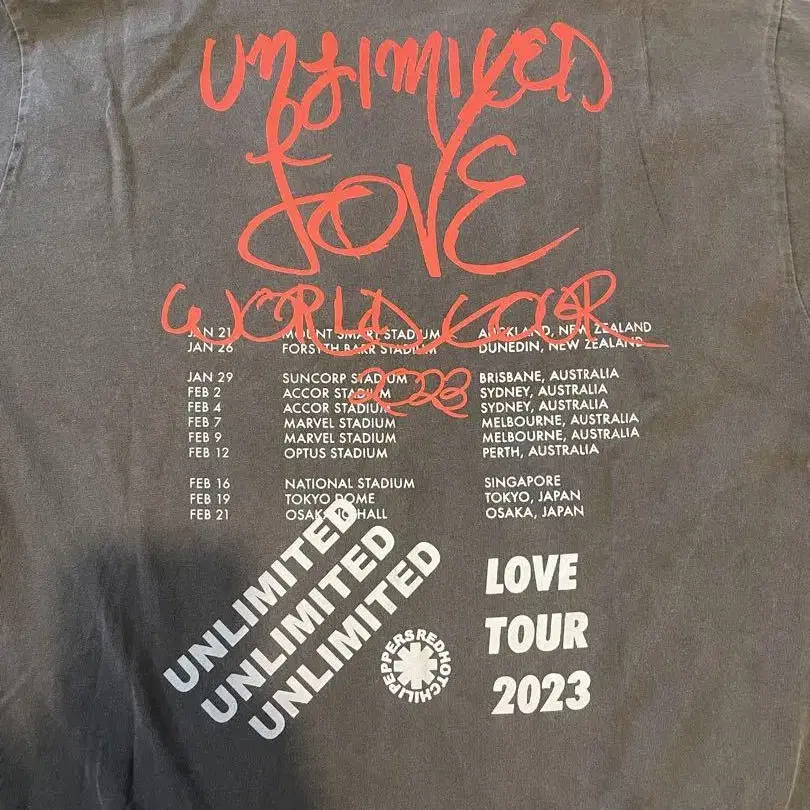 UNLIMITED
LOVE
WORLD TOUR
2023
JAN 21 MOUNT SMART STADIUM AUCKLAND, NEW ZEALAND
JAN 26 FORSYTH BARR STADIUM DUNEDIN, NEW ZEALAND
JAN 29 SUNCORP STADIUM BRISBANE, AUSTRALIA
FEB 2 ACCOR STADIUM SYDNEY, AUSTRALIA
FEB 4 ACCOR STADIUM SYDNEY, AUSTRALIA
FEB 7 MARVEL STADIUM MELBOURNE, AUSTRALIA
FEB 9 MARVEL STADIUM MELBOURNE, AUSTRALIA
FEB 12 OPTUS STADIUM PERTH, AUSTRALIA
FEB 16 NATIONAL STADIUM SINGAPORE
FEB 19 TOKYO DOME TOKYO, JAPAN
FEB 21 OSAKA HALL OSAKA, JAPAN
UNLIMITED
UNLIMITED
UNLIMITED
RED HOT CHILI PEPPERS
LOVE
TOUR
2023